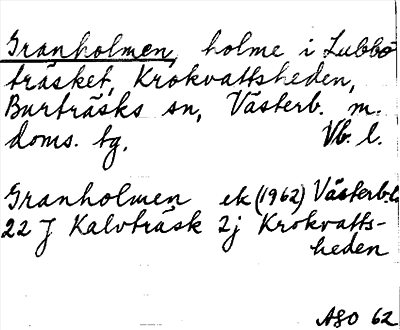 Granholmen, holme i Lubbo
träsket, Krokvattsheden,
Burträsks sn, Västerb. m.
doms. tg. Vb. l.
Granholmen ek (1962) Västerb.l.
22 J Kalvträsk 2j Krokvatts-
heden
ASO 62